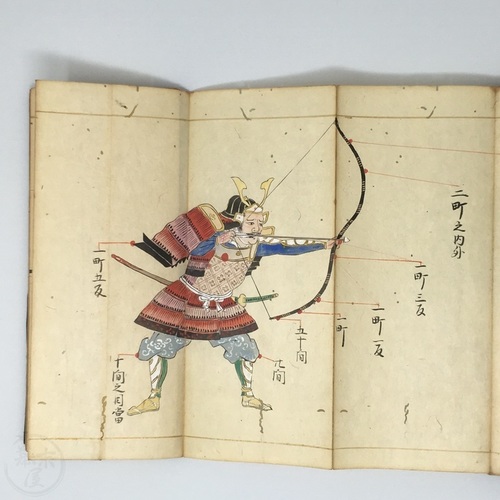 二町之内外
一町三反
一町一反
一町
五十間
一町五反
十間之内當